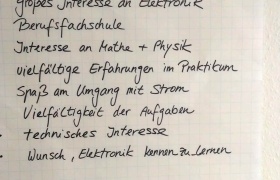 großes Interesse an Elektronik
Berufsfachschule
Interesse an Mathe + Physik
vielfältige Erfahrungen im Praktikum
Spaß am Umgang mit Strom
Vielfältigkeit der Aufgaben
technisches Interesse
Wunsch, Elektronik kennen zu lernen